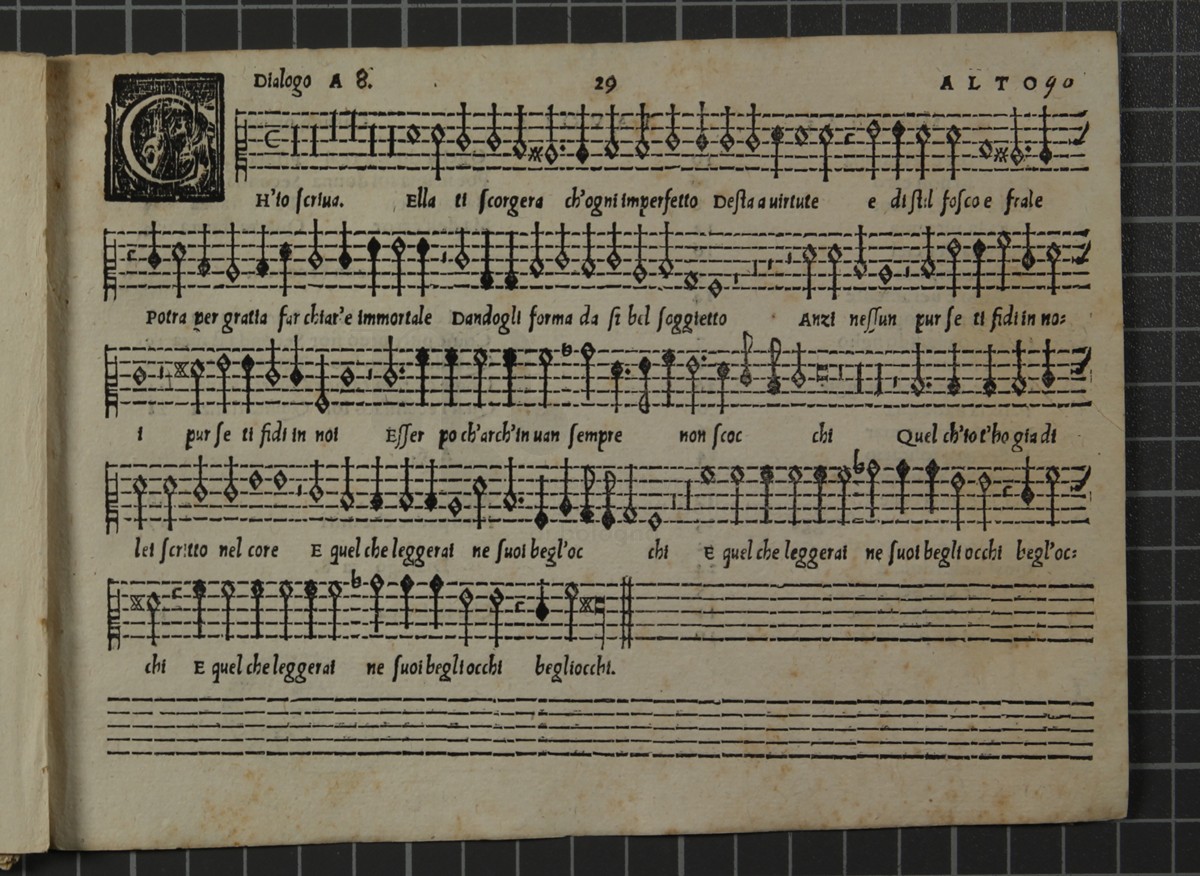 Dialogo A 8. 29 ALTO 90
C
H'io scriua. Ella ti scorgera ch'ogni imperfetto Desta a uirtute e di stil fosco e frale
Potra per gratia far chiar'e immortale Dandogli forma da si bel soggietto Anzi nessun pur se ti fidi in no:
i pur se ti fidi in noi Esser po ch'arch'in uan sempre non scoc chi Quel ch'io t'ho gia di
lei scritto nel core E quel che leggerai ne suoi begl'oc chi E quel che leggerai ne suoi begli occhi begl'oc:
chi E quel che leggerai ne suoi begli occhi begliocchi.